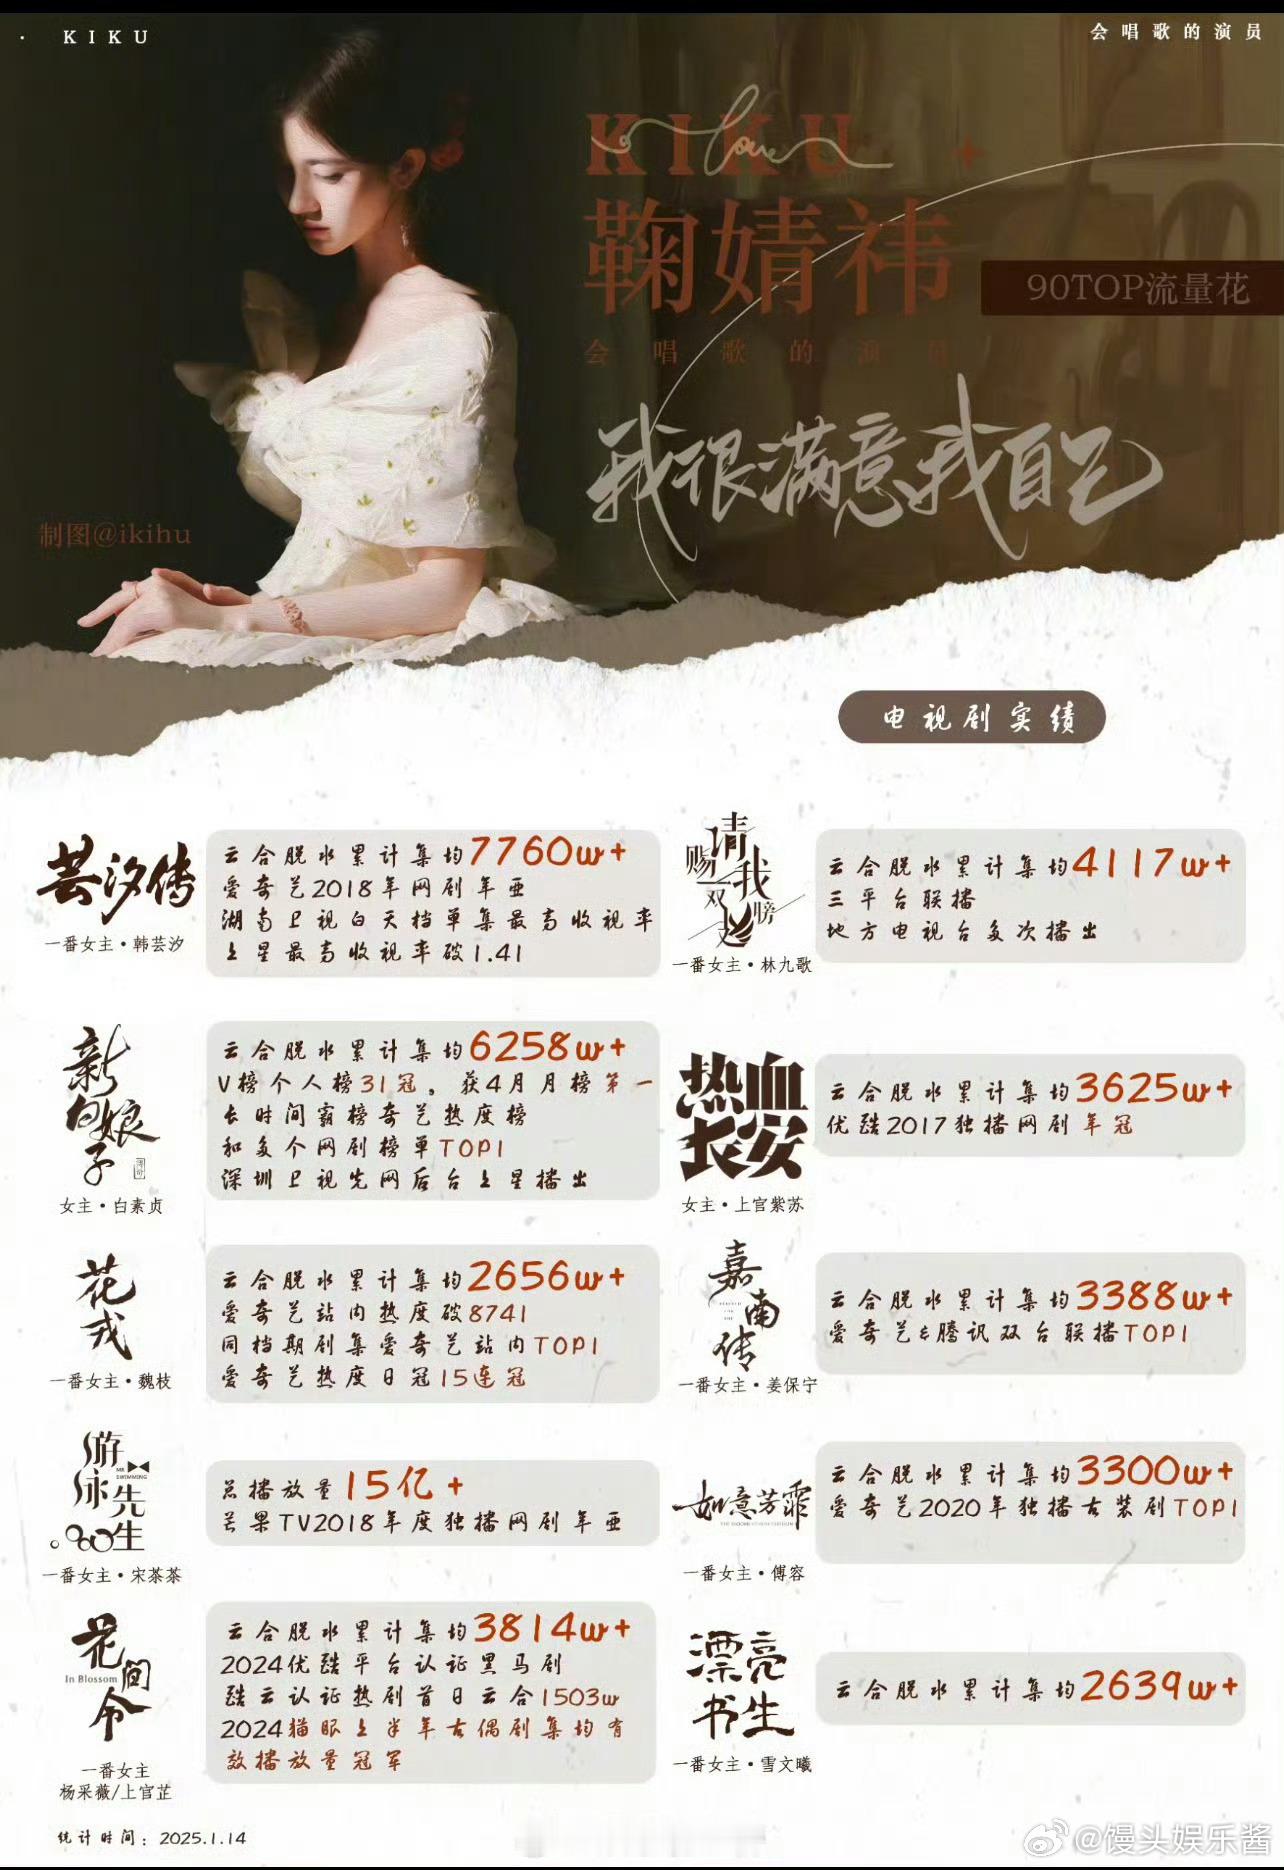 · KIKU
会唱歌的演员
KIKU
love
鞠婧祎
90TOP流量花
会唱歌的演员
我很满意我自己
制图@ikihu
电视剧实绩
芸汐传
一番女主·韩芸汐
云合脱水累计集均7760w+
爱奇艺2018年网剧年亚
湖南卫视白天档单集最高收视率
上星最高收视率破1.41
请赐我一双翅膀
一番女主·林九歌
云合脱水累计集均4117w+
三平台联播
地方电视台多次播出
新白娘子
传奇
女主·白素贞
云合脱水累计集均6258w+
V榜个人榜31冠，获4月月榜第一
长时间霸榜奇艺热度榜
和多个网剧榜单TOP1
深圳卫视先网后台上星播出
热血长安
女主·上官紫苏
云合脱水累计集均3625w+
优酷2017独播网剧年冠
花戎
一番女主·魏枝
云合脱水累计集均2656w+
爱奇艺站内热度破8741
同档期剧集爱奇艺站内TOP1
爱奇艺热度日冠15连冠
嘉南传
一番女主·姜保宁
云合脱水累计集均3388w+
爱奇艺&腾讯双台联播TOP1
游泳先生
MR SWIMMING
一番女主·宋茶茶
总播放量15亿+
芒果TV2018年度独播网剧年亚
如意芳霏
一番女主·傅容
云合脱水累计集均3300w+
爱奇艺2020年独播古装剧TOP1
花间令
In Blossom
一番女主
杨采薇/上官芷
云合脱水累计集均3814w+
2024优酷平台认证黑马剧
酷云认证热剧首日云合1503w
2024猫眼上半年古偶剧集均有
效播放量冠军
漂亮书生
一番女主·雪文曦
云合脱水累计集均2639w+
统计时间：2025.1.14
@馒头娱乐酱